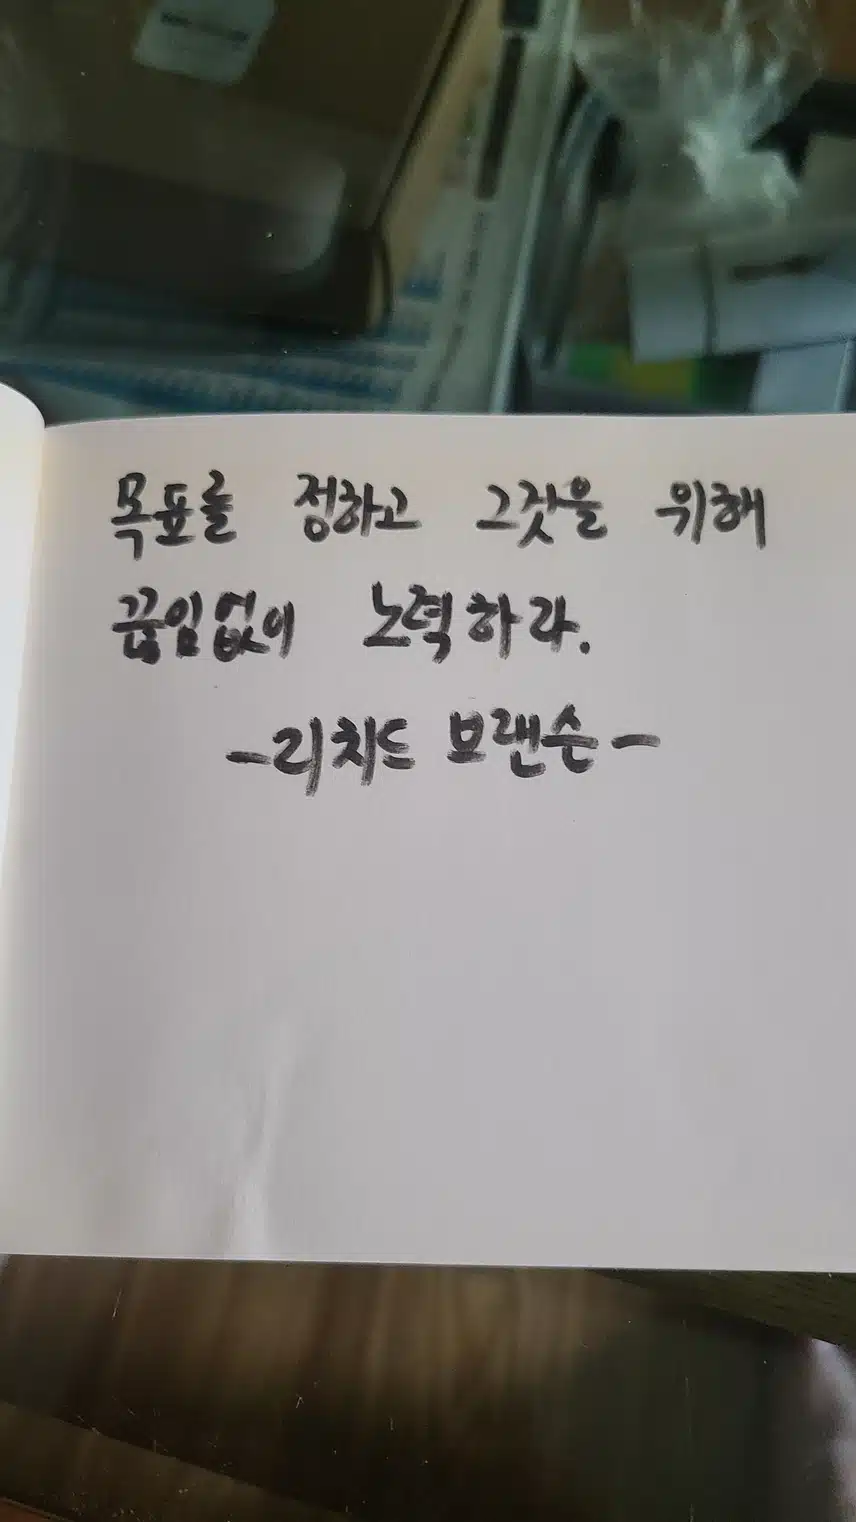 목표를 정하고 그것을 위해
끊임없이 노력하라.
-리치드 브랜슨-